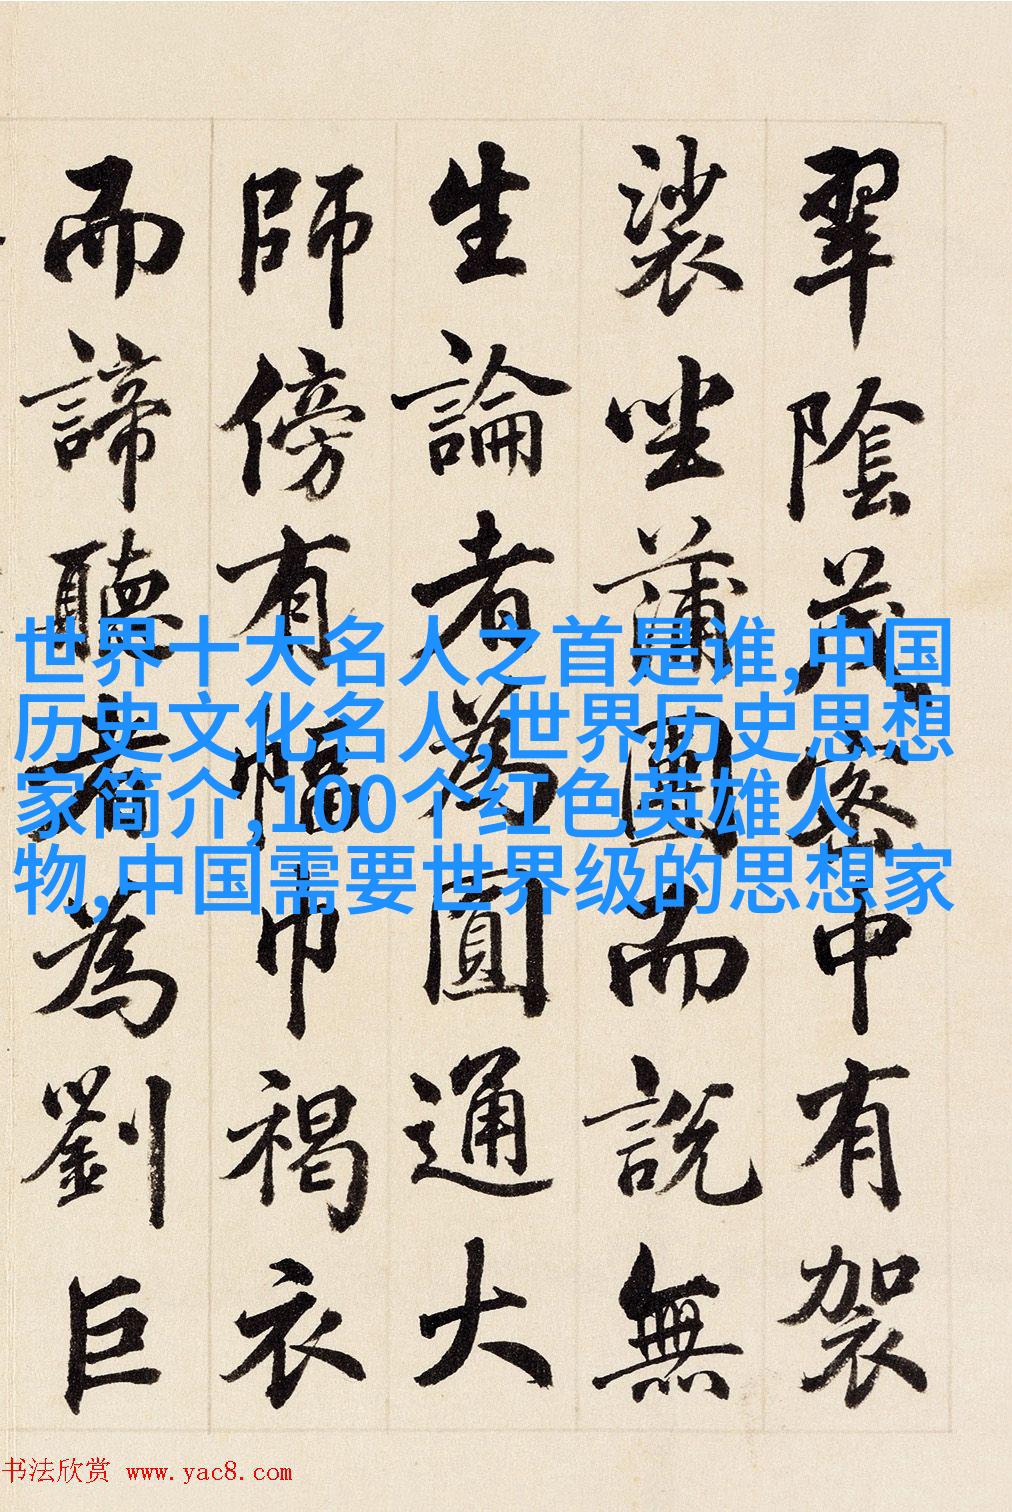 翠陰茂密中有袈
裟坐蒲團而說無
生論者為圓通大
師傍有幅巾褐衣
而諦聽者為劉巨
世界十大名人之首是谁,中国
历史文化名人,世界历史思想
家简介,100个红色英雄人
物,中国需要世界级的思想家
书法欣赏 www.yac8.com